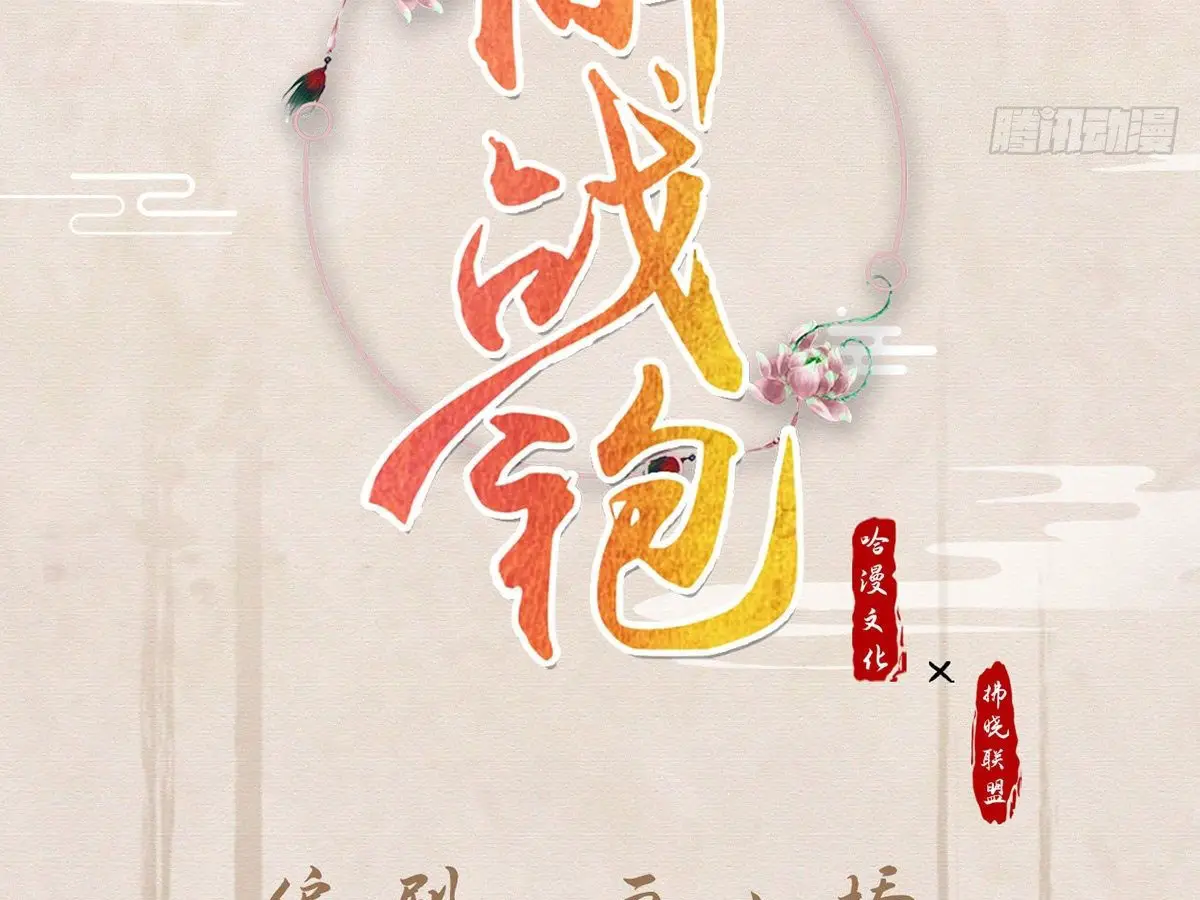 腾讯动漫
战
袍
哈漫文化
×
拂晓联盟
编剧